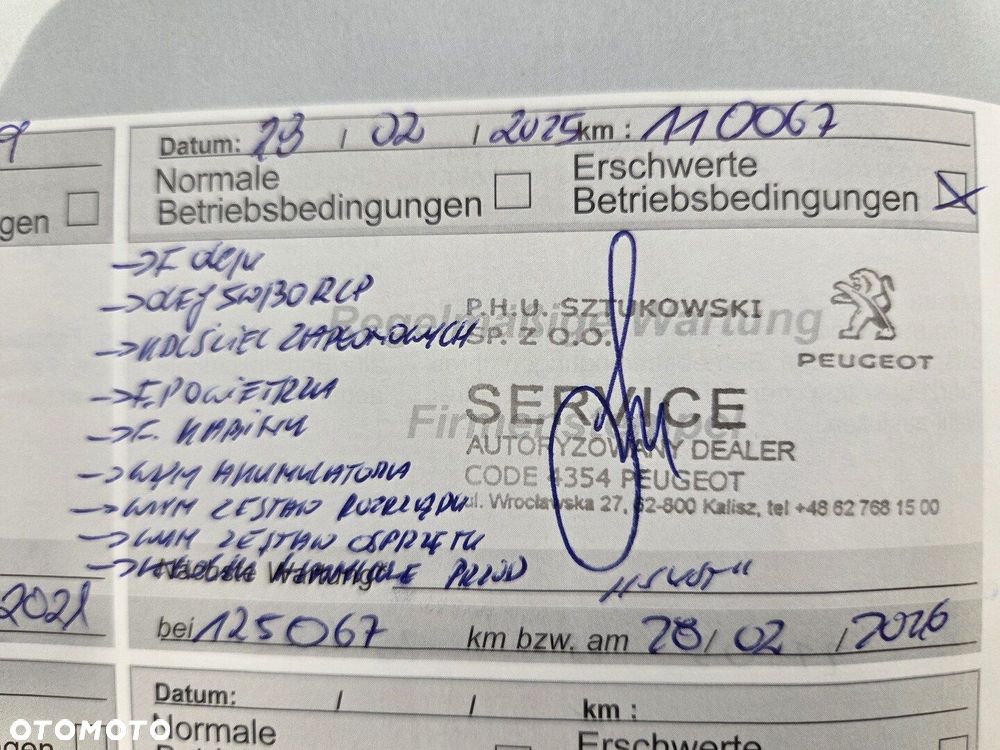 Datum: / 02 / 2025 km : 110067
Normale
Betriebsbedingungen
Erschwerte
Betriebsbedingungen
gen
→ F oleju
→ OLEJ 5W/30 RCP
→ KOL ŚWIEC ZAPŁONOWYCH
→ F. POWIETRZA
→ F. KABINY
→ WYM AKUMULATORA
→ WYM ZESTAW ROZRZĄDU
→ WYM ZESTAW OSPRZĘTU
→ PRZÓD
Regelmäßige Wartung
P.H.U. SZTUKOWSKI
SP. Z O.O.
PEUGEOT
SERVICE
AUTORYZOWANY DEALER
CODE 4354 PEUGEOT
ul. Wrocławska 27, 62-800 Kalisz, tel +48 62 768 15 00
Nächste Wartung
2021
bei 125067 km bzw. am 28 / 02 / 2026
Datum: / / km :
Normale
Erschwerte
OTOMOTO